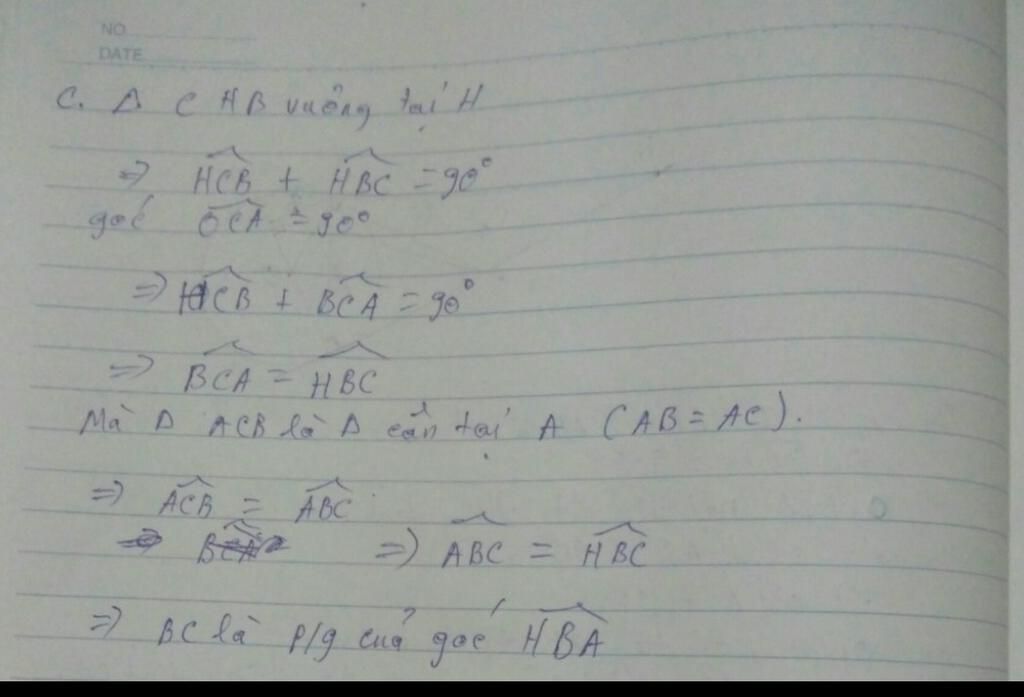 NO
DATE
C. Δ CHB vuông tại H
=> \widehat{HCB} + \widehat{HBC} = 90°
góc \widehat{OCA} = 90°
=> \widehat{HCB} + \widehat{BCA} = 90°
=> \widehat{BCA} = \widehat{HBC}
Mà Δ ACB là Δ cân tại A (AB = AC).
=> \widehat{ACB} = \widehat{ABC}
=> \widehat{ABC} = \widehat{HBC}
=> BC là p/g của góc \widehat{HBA}